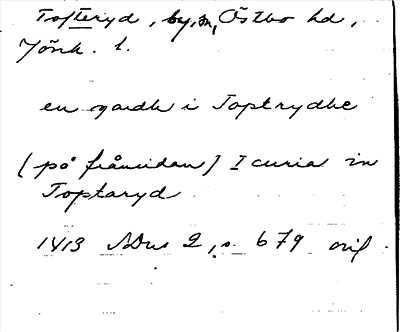 Tofteryd, by, sn, Östbo hd,
Jönk. l.
en gardh i Toptrydhe
(på frånsidan) I curia in
Toptaryd
1413 SDns 2, s. 679 orig.